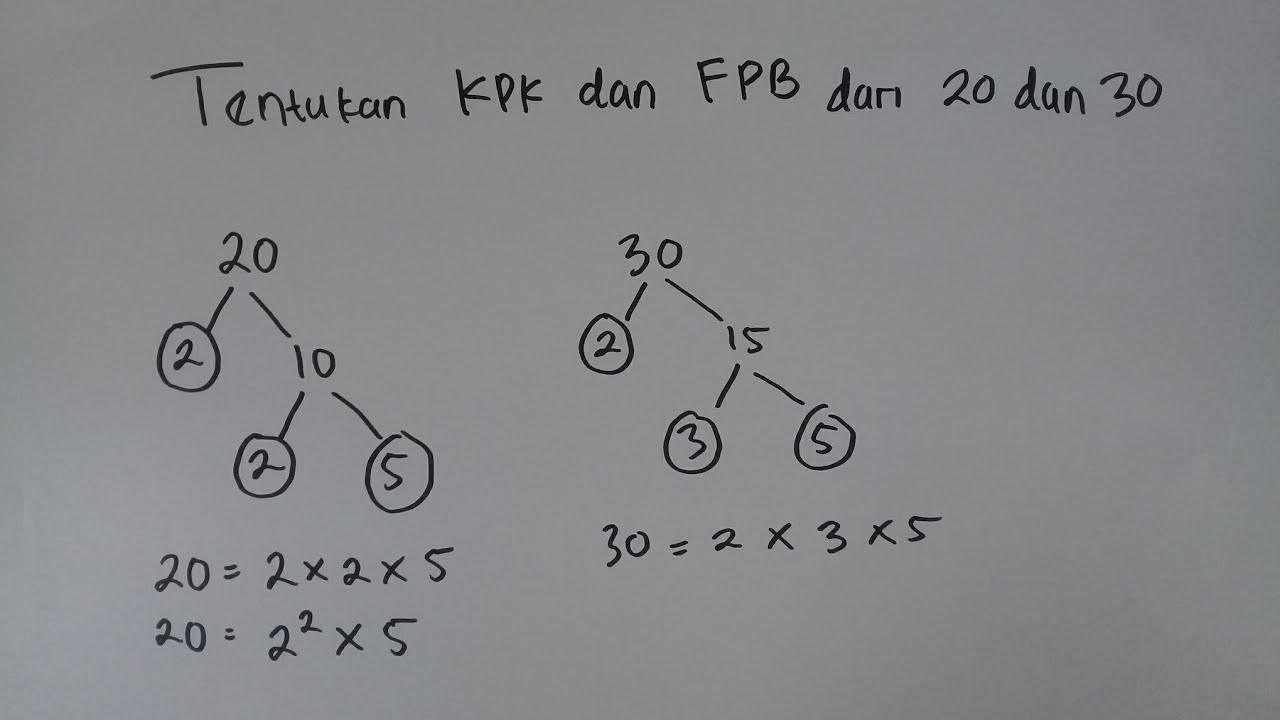 Tentukan KPK dan FPB dari 20 dan 30
20
2
10
2
5
20 = 2 × 2 × 5
20 = 2² × 5
30
2
15
3
5
30 = 2 × 3 × 5